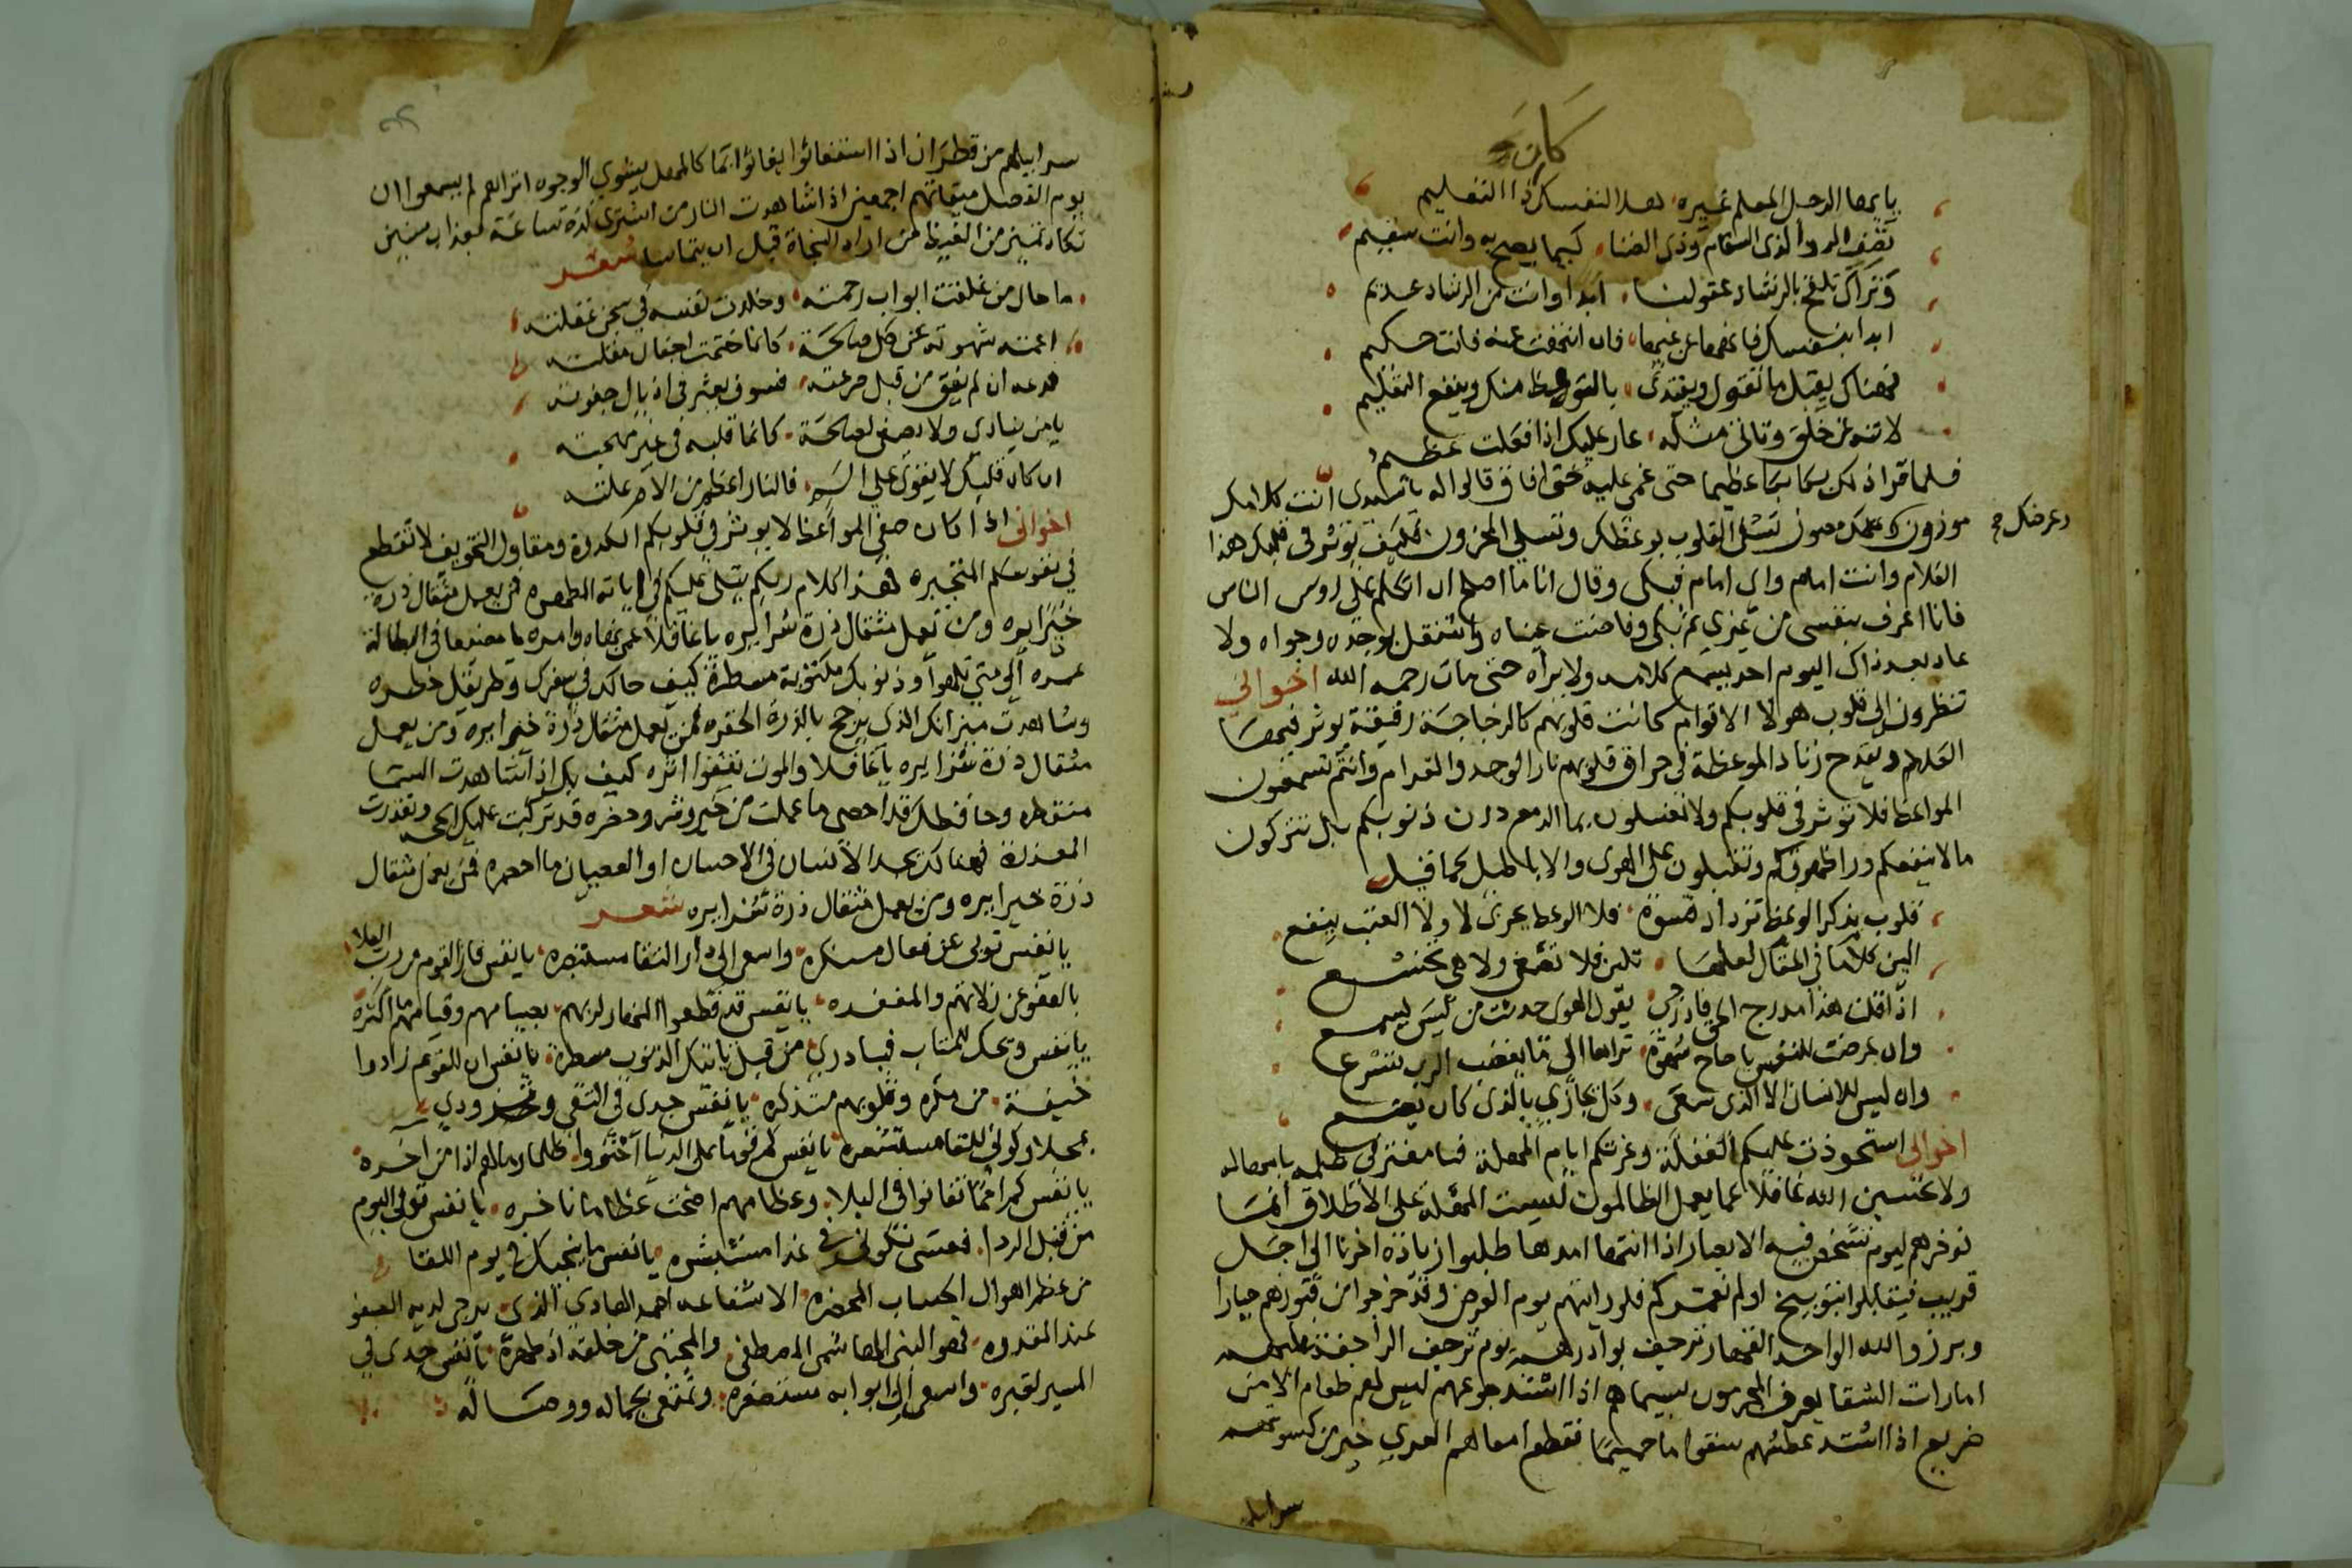 كان
يا ايها الرجل المعلم غيره هلا لنفسك ذا التعليم
تصف الدوا لذى السقام وذي الضنا كيما يصح به وانت سقيم
وتراك تلقح بالرشاد عقولنا ابدا وانت من الرشاد عديم
ابدا بنفسك فانهها عن غيها فان انتهت عنه فانت حكيم
فهناك يقبل ما تقول ويقتدى بالوعظ منك وينفع التعليم
لا تنه عن خلق وتاتي مثله عار عليك اذا فعلت عظيم
فلما قرا ذلك بكا بكا عظيما حتى غمى عليه حتى افاق قالوا له يا سيدى انت كلامك
موزون وعرضك مصون تسلى القلوب بوعظك وتسلي المحزون فكيف يوثر في قلبك هذا
وعرضك صح
الكلام وانت امام واي امام فبكى وقال انا ما اصلح ان اتكلم على روس الناس
فانا اعرف بنفسي من غيري ثم بكى وفاضت عيناه واشتغل بوجده وجواه ولا
عاد بعد ذاك اليوم احد يسمع كلامه ولا يراه حتى مات رحمه الله اخواني
تنظرون الى قلوب هولا الاقوام كانت قلوبهم كالزجاجة رقيقة يوثر فيها
الكلام ويقدح زناد الموعظة في حراق قلوبهم نار الوجد والغرام وانتم تسمعون
المواعظ فلا توثر في قلوبكم ولا تغسلون بما الدمع درن ذنوبكم بل تتركون
ما لا ينفعكم ورا ظهوركم وتقبلون على الهوى والاباطيل كما قيل
قلوب بذكر الوعظ تزداد قسوة فلا الوعظ يجري لا ولا العتب ينفع
الين كلاما في المقال لعلها تلين فلا تصغي ولا هي تخشع
اذا قلت هذا مدرج الحق فادرجي يقول الهوى حدثت من ليس يسمع
وان عرضت للنفس يا صاح شهوة تراها الى ما يغضب الرب تسرع
وان ليس للانسان الا الذى سعى وكل يجازي بالذى كان يصنع
اخواني استحوذت عليكم الغفلة وغرتكم ايام المهلة فيا مغتر في ظلمه بامهاله
ولا تحسبن الله غافلا عما يعمل الظالمون ليست المهلة على الاطلاق انما
نوخرهم ليوم تشخص فيه الابصار اذا انتها امدها طلبوا زيادة اخرنا الى اجل
قريب فيقابلوا بتوبيخ اولم نعمركم فلو رايتهم يوم العرض وقد خرجوا من قبورهم حيارا
وبرزوا لله الواحد القهار ترجف بوادرهم يوم ترجف الراجفة عليهم
امارات الشقا يعرف المجرمون بسيماهم اذا اشتد جوعهم ليس لهم طعام الا من
ضريع اذا اشتد عطشهم سقوا ما حميما فقطع امعاهم العري خير من كسوتهم
سرابيلهم
سرابيلهم من قطران اذا استغاثوا يغاثوا بما كالمهل يشوي الوجوه اتراهم لم يسمعوا ان
يوم الفصل ميقاتهم اجمعين اذا شاهدت النار من اشترى لذة ساعة بعذاب سنين
تكاد تميز من الغيظ فمن اراد النجاة قبل ان شعر
ما حال من غلقت ابواب رحمته وخلدت نفسه في سجن غفلته
اعمته شهوته عن كل صالحة كانما ختمت اجفان مقلته
فدعه ان لم يفق من قبل صرعته فسوف يعثر في اذيال جفوته
يا من ينادي ولا يصغي لصالحة كانما قلبه في غير مهجته
ان كان قلبك لا يقوى على السير فالنار اعظم من الام علته
اخواني اذا كان صفي المواعظ لا يوثر في قلوبكم الكدرة ومقاول التخويف لا تقطع
في نفوسكم المتجبره فهذا كلام ربكم يتلى عليكم في اياته المطهره فمن يعمل مثقال ذرة
خيرا يره ومن يعمل مثقال ذرة شرا يره يا غافلا عن نهاه وامره يا مضيعا في البطالة
عمره الى متى تلهوا وذنوبك مكتوبة مسطرة كيف حالك في سفرك وطريقك خطره
وشاهدت ميزانك الذى يرجح بالذرة الحقره فمن يعمل مثقال ذرة خيرا يره ومن يعمل
مثقال ذرة شرا يره يا غافلا والموت يقفوا اثره كيف بك اذا شاهدت السما
منفطره وحافظك قد احصى ما عملت من خير وشر وحضره قد تركبت عليك الحجه وتعذرت
المعذرة فهنالك يجد الانسان في الاحسان او العصيان ما احضره فمن يعمل مثقال
ذرة خيرا يره ومن يعمل مثقال ذرة شرا يره شعر
يا نفس توبي عن فعال منكره واسعي الى دار البقا مستبصره يا نفس فاز القوم من رب العلا
بالعفو عن زلاتهم والمغفره يا نفس قد قطعوا النهار لربهم بصيامهم وقيامهم ما اكثره
يا نفس ويحك للمتاب فبادري من قبل تاتيك الذنوب مسطرة يا نفس ان القوم زادوا
خيفة من مكره وقلوبهم متذكره يا نفس جدي في التقى وتزودي
عجلا وكوني للقا مستشعره يا نفس كم قوما على الدنيا احتووا ظلما وما لهم اذا من اخره
يا نفس كم امما تفانوا في البلا وعظامهم اضحت عظاما ناخره يا نفس توبي اليوم
من قبل الردا فعسى تكوني في غدا مستبشره يا نفس ما ينجيك في يوم اللقا
من عظم اهوال الحساب المحضره الا شفاعه احمد الهادي الذي يرجى لديه العفو
عند المقدره فهو النبي الهاشمي المصطفى والمجتبى من خلقه اذ طهره يا نفس جدي في
المسير لقبره واسعي الى ابوابه مستغفره وتمتعي بجماله ووصاله